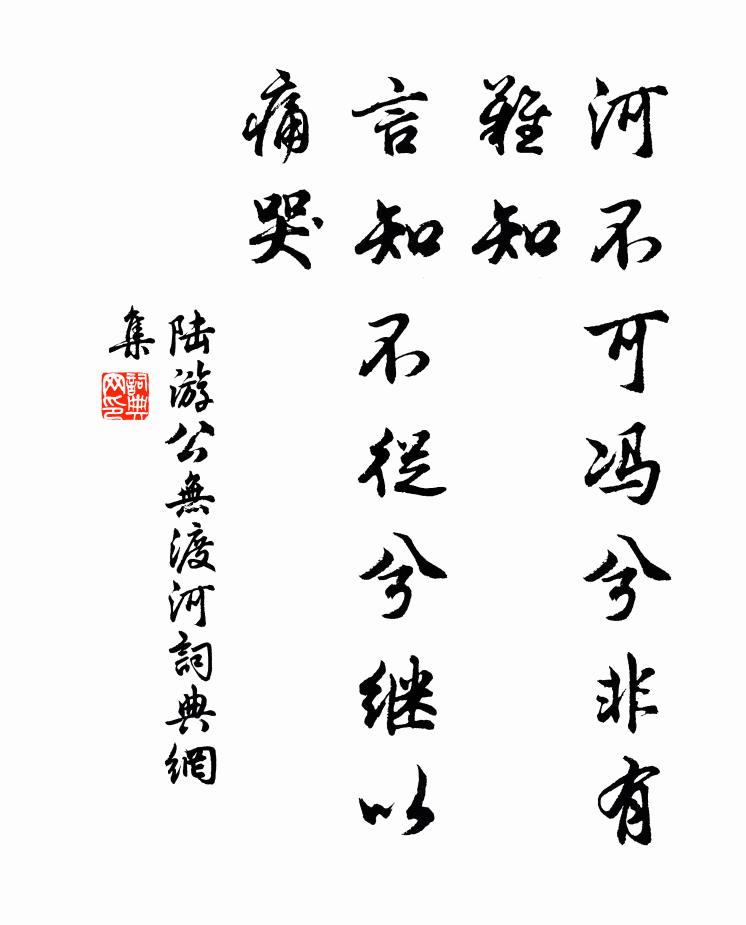 河不可冯兮非有
難知
言知不從兮继以
痛哭
陆游公無渡河詞典網
集
詞典網印